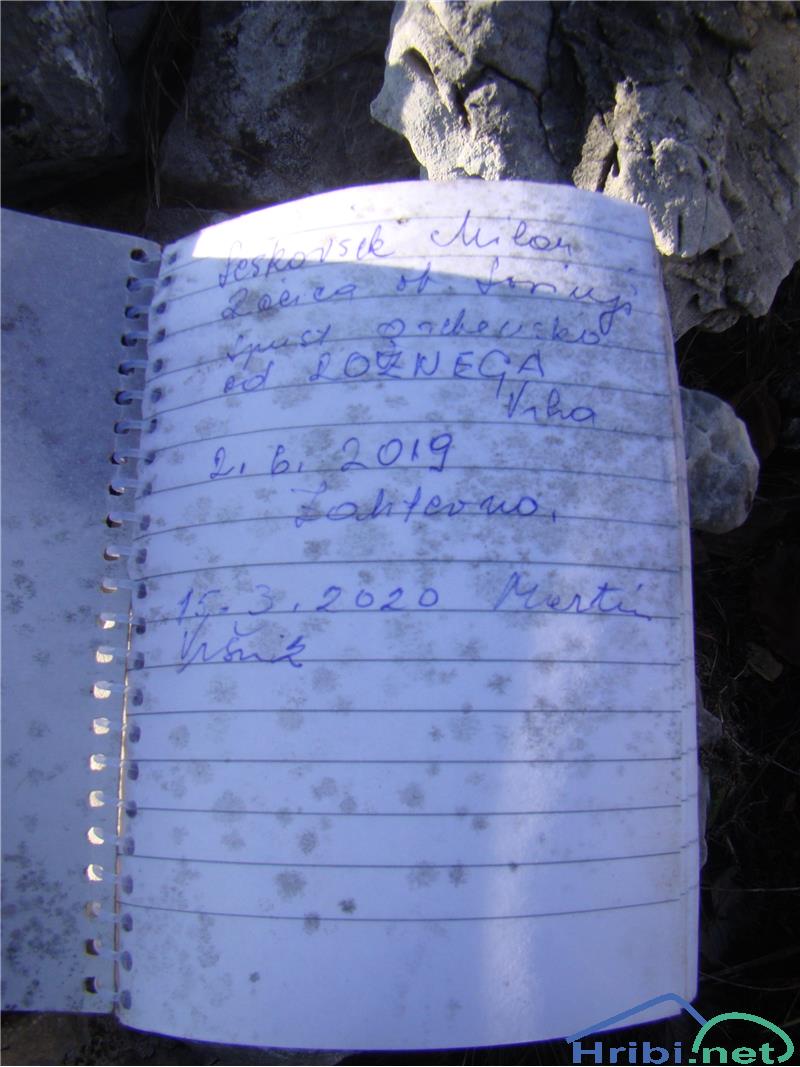 Leskovšek Milan
Ločica ob Savinji
spust grebensko
od ROŽNEGA
Vrha
2. 6. 2019
Zahtevno.
15. 3. 2020 Martin
Vršnik
Hribi.net